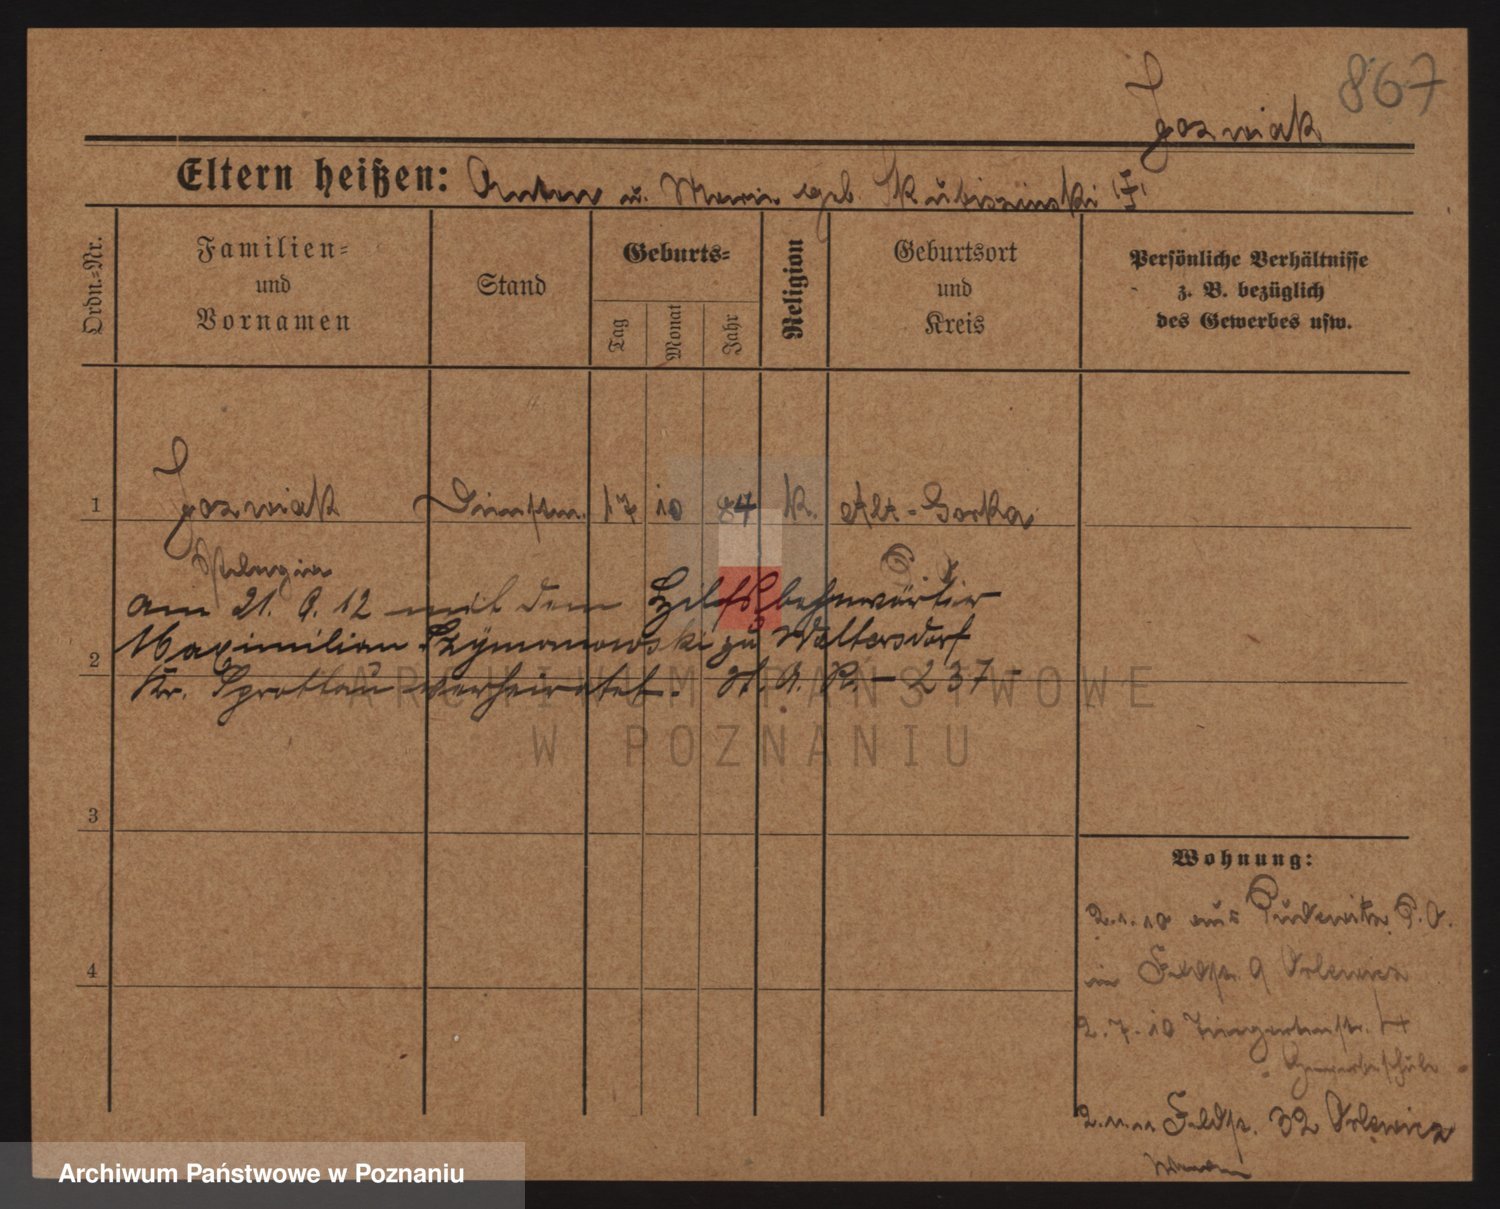 867
Jozwiak
Eltern heißen: Anton u. Maria geb. Kubiszinski
Ordn.-Nr.
Familien-
und
Vornamen
Stand
Geburts-
Tag
Monat
Jahr
Religion
Geburtsort
und
Kreis
Persönliche Verhältnisse
z. B. bezüglich
des Gewerbes usw.
1 Jozwiak Dienstm. 17 10 84 K. Alt-Gorka
Pelagia
am 21. 9. 12 mit dem Hilfsbahnwärter
Maximilian Szymanowski zu Waltersdorf
2
Kr. Sprottau verheiratet. St. A. R. - 237 -
ARCHIWUM PAŃSTWOWE
W POZNANIU
3
Wohnung:
2.1.10 aus Pudewitz P. O.
in Feldstr. 9
4
2.7.10 Tiergartenstr. 4
Gewerbeschule
2.11.11 Feldstr. 32
Archiwum Państwowe w Poznaniu